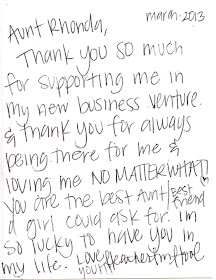 march. 2013
Aunt Rhonda,
Thank you so much
for supporting me in
my new business venture.
& thank you for always
being there for me &
loving me NO MATTER WHAT!
You are the best Aunt/Best friend
a girl could ask for. I'm
so lucky to have you in
my life. Love